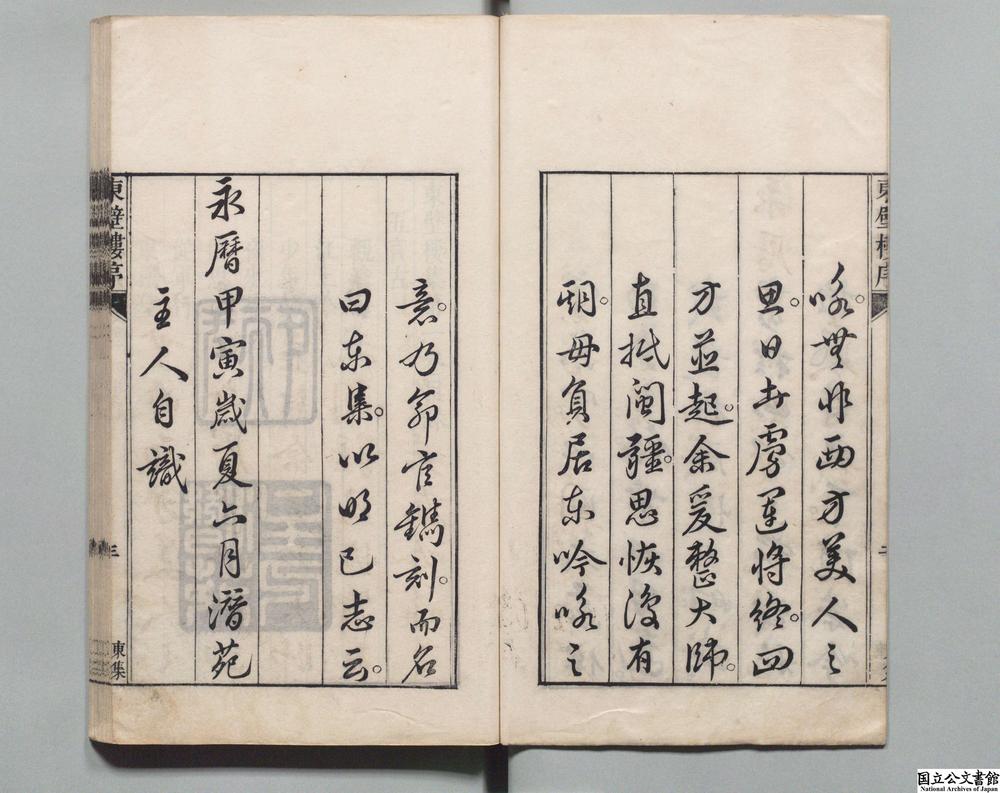 東壁樓序
咏。無非西方美人之
思。日者虜運將終。四
方並起。余爰整大師。
直抵閩疆。思恢復有
期毋負居東吟咏之
意。乃命官鐫刻。而名
曰東集。以明己志云。
永曆甲寅歲夏六月潛苑
主人自識
東壁樓序
三
東集
国立公文書館
National Archives of Japan